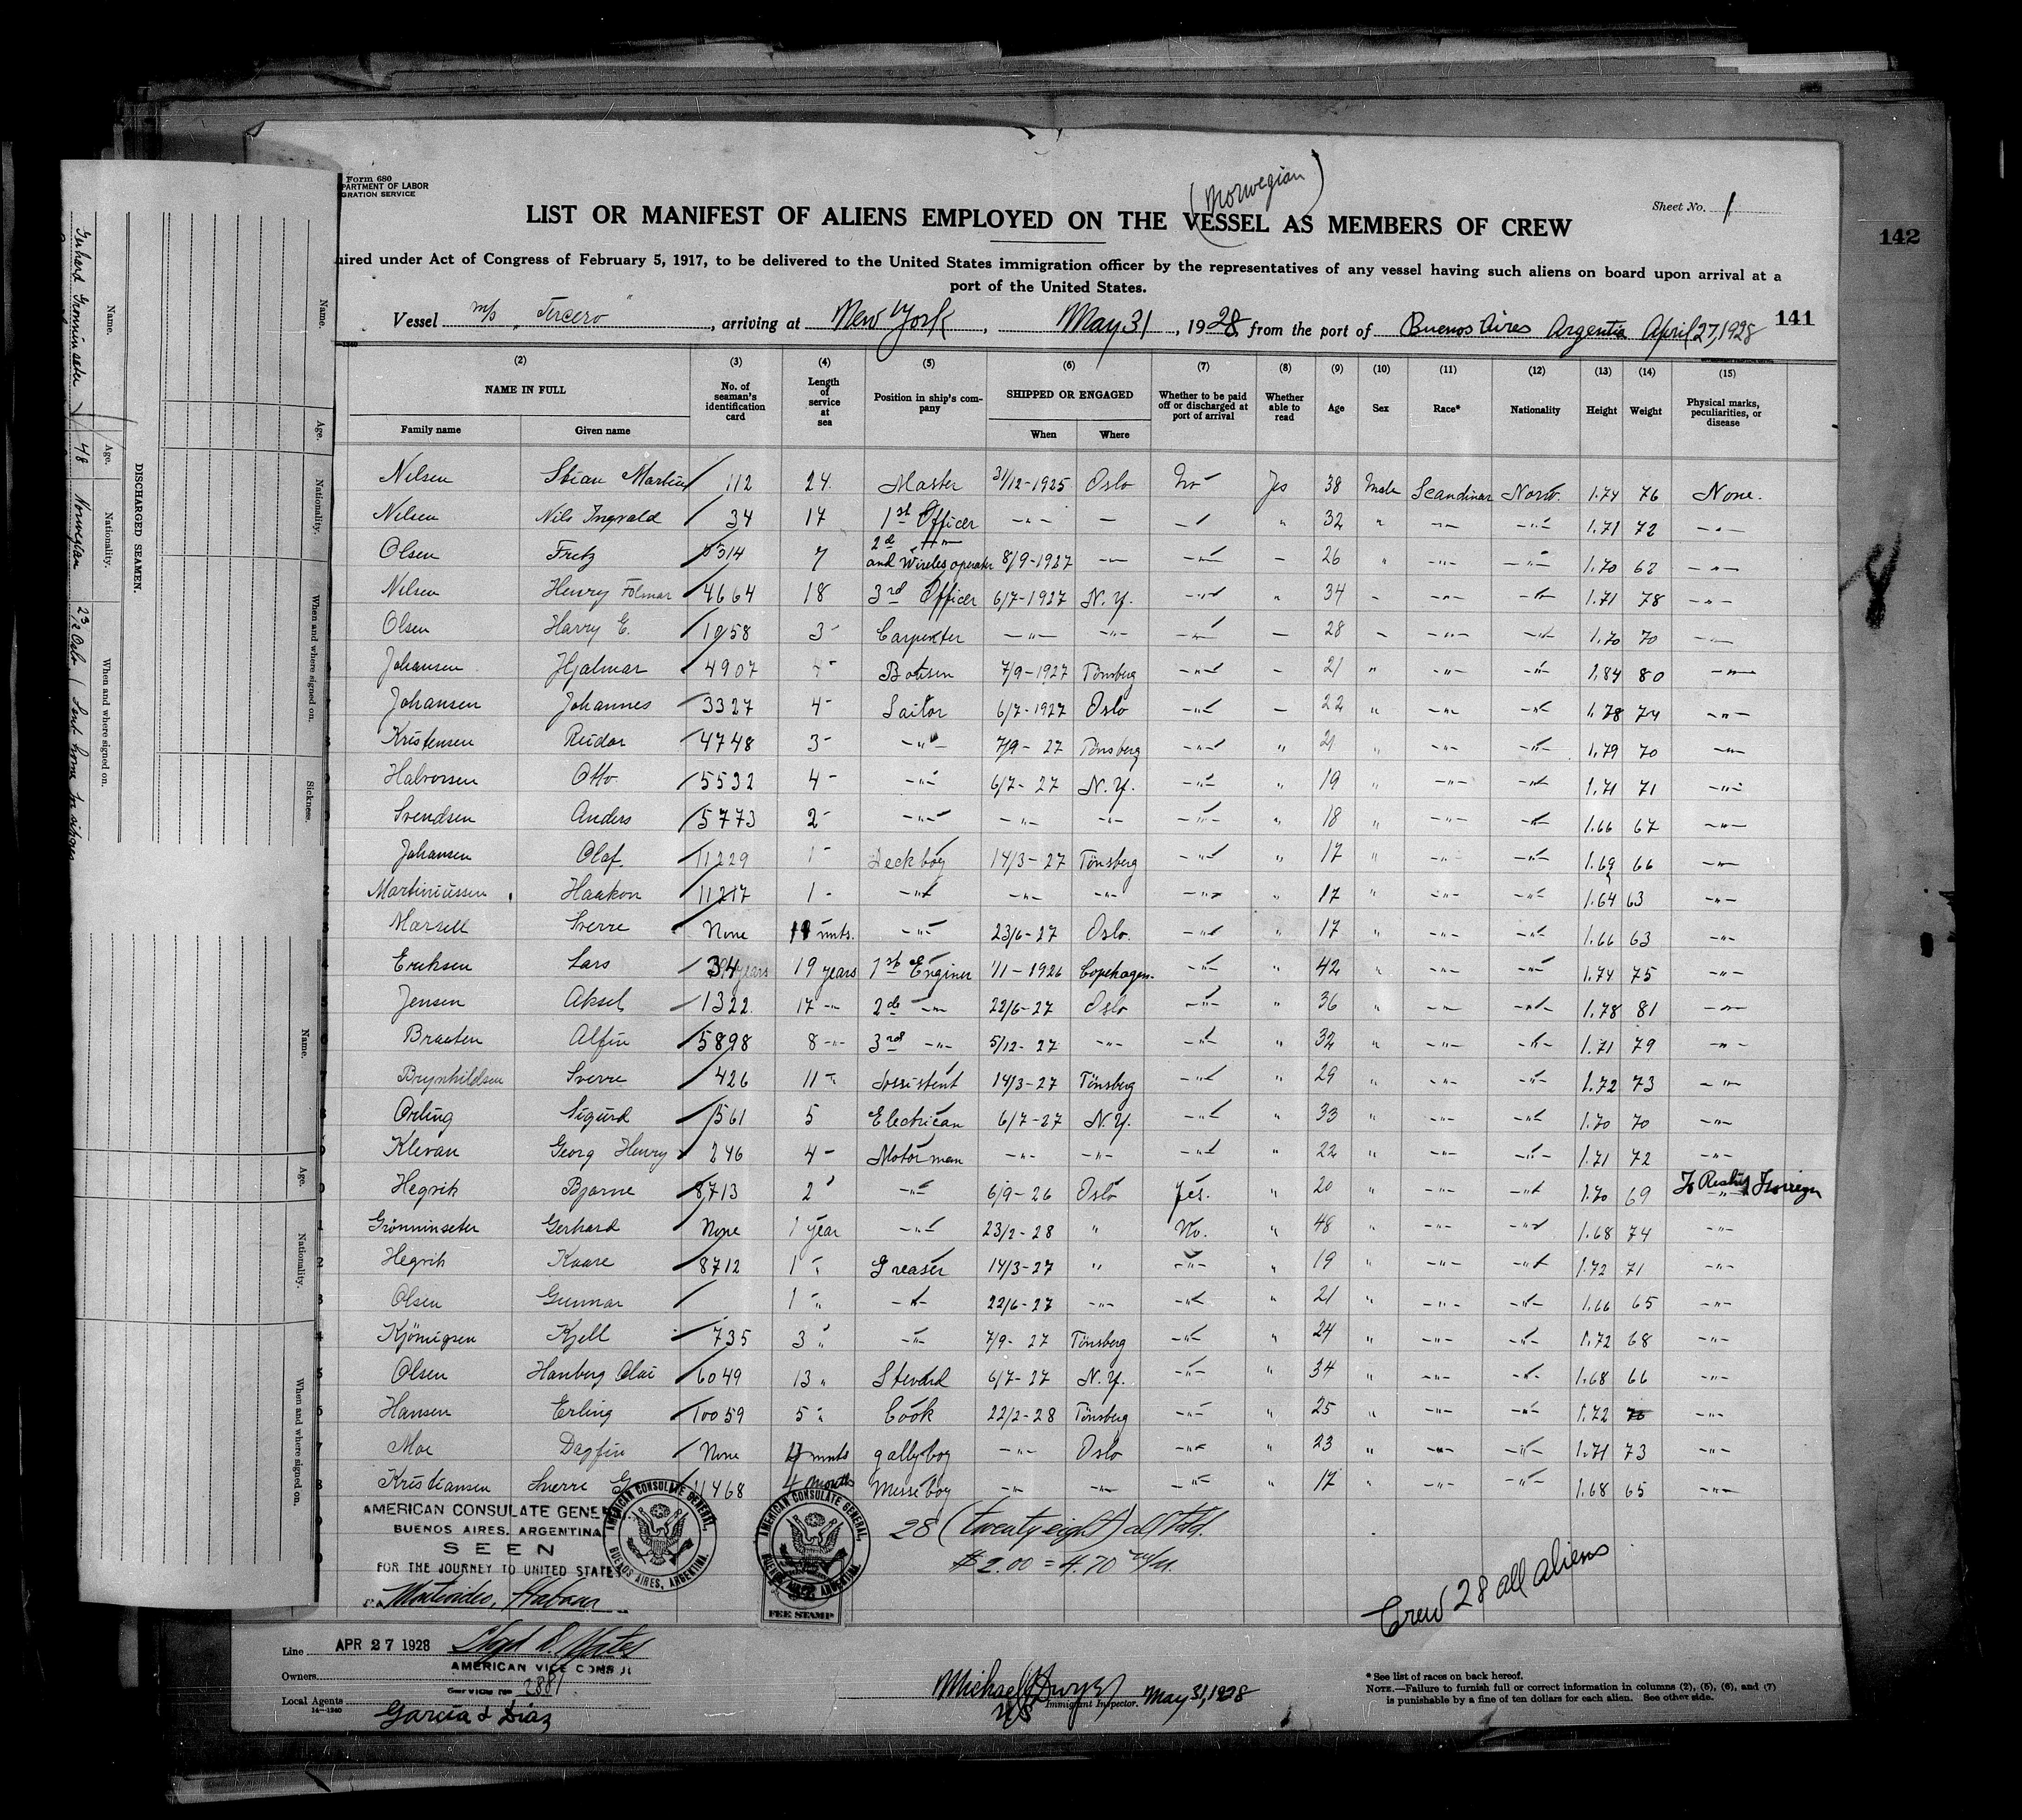 Form 680
PARTMENT OF LABOR
GRATION SERVICE
(Norwegian)
Sheet No. 1
LIST OR MANIFEST OF ALIENS EMPLOYED ON THE VESSEL AS MEMBERS OF CREW
142
uired under Act of Congress of February 5, 1917, to be delivered to the United States immigration officer by the representatives of any vessel having such aliens on board upon arrival at a
port of the United States.
Vessel m/s "Tercero", arriving at New York, May 31, 1928, from the port of Buenos Aires Argentia April 27, 1928
141
(2) (3) (4) (5) (6) (7) (8) (9) (10) (11) (12) (13) (14) (15)
NAME IN FULL
Family name Given name
No. of seaman's identification card
Length of service at sea
Position in ship's company
SHIPPED OR ENGAGED
When Where
Whether to be paid off or discharged at port of arrival
Whether able to read
Age Sex Race* Nationality Height Weight
Physical marks, peculiarities, or disease
Nilsen Stian Martin 112 24 Master 31/12-1925 Oslo No Yes 38 Male Scandinav Norw. 1.74 76 None.
Nilsen Nils Ingvald 34 17 1st Officer -"- - -"- " 32 " -"- -"- 1.71 72 -"-
Olsen Fritz 5314 7 2d -"- and Wireles operater 8/9-1927 -"- -"- - 26 " -"- -"- 1.70 62 -"-
Nilsen Henry Folmar 4664 18 3rd Officer 6/7-1927 N.Y. -"- " 34 - -"- -"- 1.71 78 -"-
Olsen Harry E. 1058 3 - Carpenter -"- -"- -"- - 28 - -"- -"- 1.70 70 -"-
Johansen Hjalmar 4907 4 - Botisen 7/9-1927 Tönsberg -"- - 21 " -"- -"- 1.84 80 -"-
Johansen Johannes 3327 4 - Sailor 6/7-1927 Oslo -"- - 22 " -"- -"- 1.78 74 -"-
Kristensen Reidar 4748 3 - -"- 7/9-27 Tönsberg -"- " 21 " -"- -"- 1.79 70 -"-
Halvorsen Otto 5532 4 - -"- 6/7-27 N.Y. -"- " 19 " -"- -"- 1.71 71 -"-
Svendsen Anders 5773 2 - -"- -"- -"- -"- " 18 " -"- -"- 1.66 67 -"-
Johansen Olaf 11229 1 - Deckboy 14/3-27 Tönsberg -"- " 17 " -"- -"- 1.69 66 -"-
Martiniussen Haakon 11217 1 - -"- -"- -"- -"- " 17 " -"- -"- 1.64 63 -"-
Marsell Sverre None 11 mnts. -"- 23/6-27 Oslo. -"- " 17 " -"- -"- 1.66 63 -"-
Eriksen Lars 34 19 years 1st Enginer 1/11-1926 Copehagen -"- " 42 " -"- -"- 1.74 75 -"-
Jensen Aksel 1322 17 -"- 2d -"- 22/6-27 Oslo -"- " 36 " -"- -"- 1.78 81 -"-
Braaten Alfin 5898 8 -"- 3rd -"- 5/12-27 -"- -"- " 32 " -"- -"- 1.71 79 -"-
Brynhildsen Sverre 426 11 " Assistent 14/3-27 Tönsberg -"- " 29 " -"- -"- 1.72 73 -"-
Orling Sigurd 1561 5 Electrican 6/7-27 N.Y. -"- " 33 " -"- -"- 1.70 70 -"-
Klevan Georg Henry 246 4 - Motor man -"- -"- -"- " 22 " -"- -"- 1.71 72 -"-
Hegvik Bjarne 8713 2 " -"- 6/9-26 Oslo Yes. " 20 " -"- -"- 1.70 69 To Reship Foreign
Grönninseter Gerhard None 1 year -"- 23/2-28 " No. " 48 " -"- -"- 1.68 74 -"-
Hegvik Kaare 8712 1 " Greaser 14/3-27 " -"- " 19 " -"- -"- 1.72 71 -"-
Olsen Gunnar 1 " -"- 22/6-27 -"- -"- " 21 " -"- -"- 1.66 65 -"-
Kjönigsen Kjell 735 3 " -"- 7/9-27 Tönsberg -"- " 24 " -"- -"- 1.72 68 -"-
Olsen Hanberg Olai 6049 13 " Stevard 6/7-27 N.Y. -"- " 34 " -"- -"- 1.68 66 -"-
Hansen Erling 10059 5 " Cook 22/2-28 Tönsberg -"- " 25 " -"- -"- 1.72 -"-
Moe Dagfin None 4 mnts gallyboy -"- Oslo -"- " 23 " -"- -"- 1.71 73 -"-
Kristiansen Sverre G 11468 4 months Messeboy -"- -"- -"- " 17 " -"- -"- 1.68 65 -"-
AMERICAN CONSULATE GENE
BUENOS AIRES, ARGENTINA
SEEN
FOR THE JOURNEY TO UNITED STATES
Montevideo, Habana
AMERICAN CONSULATE GENERAL, BUENOS AIRES, ARGENTINA.
AMERICAN CONSULATE GENERAL, BUENOS AIRES, ARGENTINA.
FEE STAMP
28 (twenty eight) all told.
$2.00 = 4.70 m/n.
Crew 28 all aliens
Line APR 27 1928
AMERICAN VICE CONSUL
Owners
Service No 2881
Local Agents Garcia & Diaz
14-1240
Michael Dwyer May 31, 1928
Immigrant Inspector.
*See list of races on back hereof.
NOTE.—Failure to furnish full or correct information in columns (2), (5), (6), and (7)
is punishable by a fine of ten dollars for each alien. See other side.
DISCHARGED SEAMEN.
Name. Age. Nationality. When and where signed on.
Gerhard Gronninseter 48 Norwegian 23/2 Oslo Sent home
Name. Age. Nationality. When and where signed on. Sickness.
Name. Age. Nationality. When and where signed on.